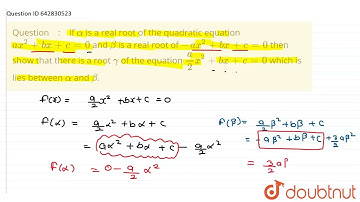 Question ID 642830523
Question : If α is a real root of the quadratic equation
ax² + bx + c = 0 and β is a real root of −ax² + bx + c = 0 then
show that there is a root γ of the equation a/2 x² + bx + c = 0 which is
lies between α and β.
f(x) = a/2 x² + bx + c = 0
f(α) = a/2 α² + bα + c
= aα² + bα + c − a/2 α²
f(α) = 0 − a/2 α²
f(β) = a/2 β² + bβ + c
= −aβ² + bβ + c + 3/2 aβ²
= 3/2 aβ
doubtnut